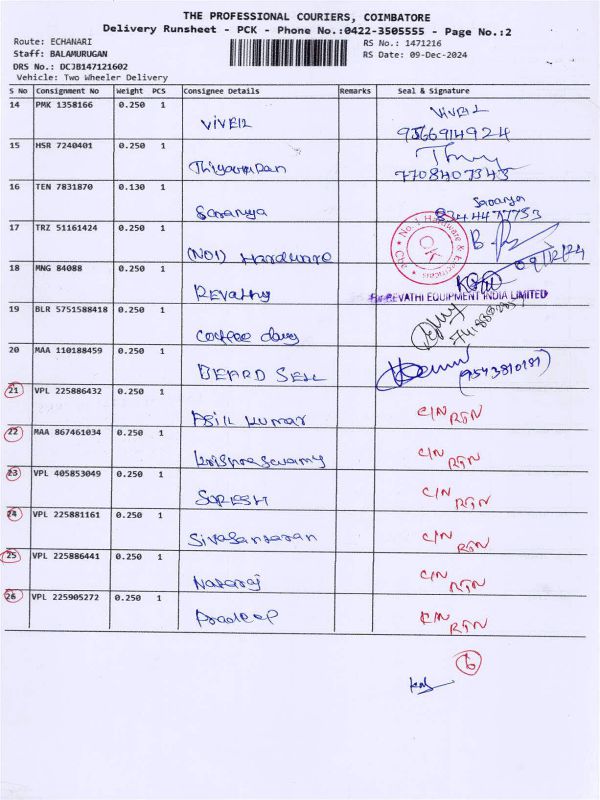 THE PROFESSIONAL COURIERS, COIMBATORE
Delivery Runsheet - PCK - Phone No.:0422-3505555 - Page No.:2
Route: ECHANARI
RS No.: 1471216
Staff: BALAMURUGAN
RS Date: 09-Dec-2024
DRS No.: DCJB147121602
Vehicle: Two Wheeler Delivery
S No Consignment No Weight PCS Consignee Details Remarks Seal & Signature
14 PMK 1358166 0.250 1 VIVEIL VIVEIL
9566914924
15 HSR 7240401 0.250 1 Thiyagurajan
7708407343
16 TEN 7831870 0.130 1 Saranya Saranya
9344477753
17 TRZ 51161424 0.250 1 (NO1) Hardware
No.1 Hardware & Electricals
OK
09/12/24
18 MNG 84088 0.250 1 REvathy
For REVATHI EQUIPMENT INDIA LIMITED
19 BLR 5751588418 0.250 1 coffee day
20 MAA 110188459 0.250 1 BEARD SELL
(9543810181)
21 VPL 225886432 0.250 1 Asill kumar C/N RTN
22 MAA 867461034 0.250 1 krishnaswamy C/N RTN
23 VPL 405853049 0.250 1 SURESH C/N RTN
24 VPL 225881161 0.250 1 Sivasankaran C/N RTN
25 VPL 225886441 0.250 1 Nataraj C/N RTN
26 VPL 225905272 0.250 1 Pradeep C/N RTN
6